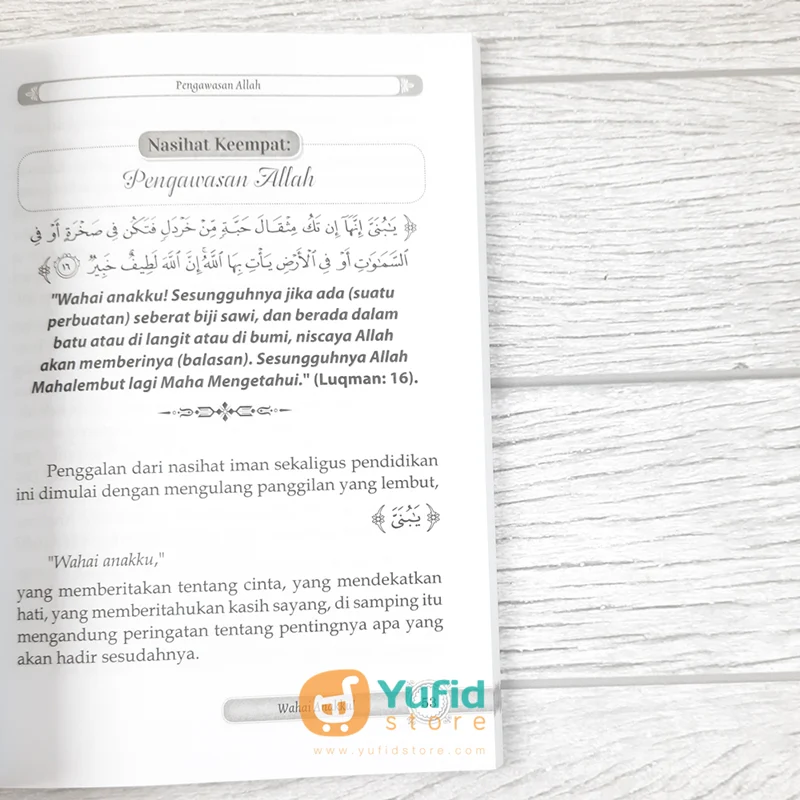 Pengawasan Allah
Nasihat Keempat:
Pengawasan Allah
﴿ يَٰبُنَيَّ إِنَّهَآ إِن تَكُ مِثْقَالَ حَبَّةٍ مِّنْ خَرْدَلٍ فَتَكُن فِي صَخْرَةٍ أَوْ فِي
ٱلسَّمَٰوَٰتِ أَوْ فِي ٱلْأَرْضِ يَأْتِ بِهَا ٱللَّهُ ۚ إِنَّ ٱللَّهَ لَطِيفٌ خَبِيرٌ ١٦ ﴾
"Wahai anakku! Sesungguhnya jika ada (suatu
perbuatan) seberat biji sawi, dan berada dalam
batu atau di langit atau di bumi, niscaya Allah
akan memberinya (balasan). Sesungguhnya Allah
Mahalembut lagi Maha Mengetahui." (Luqman: 16).
Penggalan dari nasihat iman sekaligus pendidikan
ini dimulai dengan mengulang panggilan yang lembut,
﴿ يَٰبُنَيَّ ﴾
"Wahai anakku,"
yang memberitakan tentang cinta, yang mendekatkan
hati, yang memberitahukan kasih sayang, di samping itu
mengandung peringatan tentang pentingnya apa yang
akan hadir sesudahnya.
Wahai Anakku! 53
Yufid
store
www.yufidstore.com